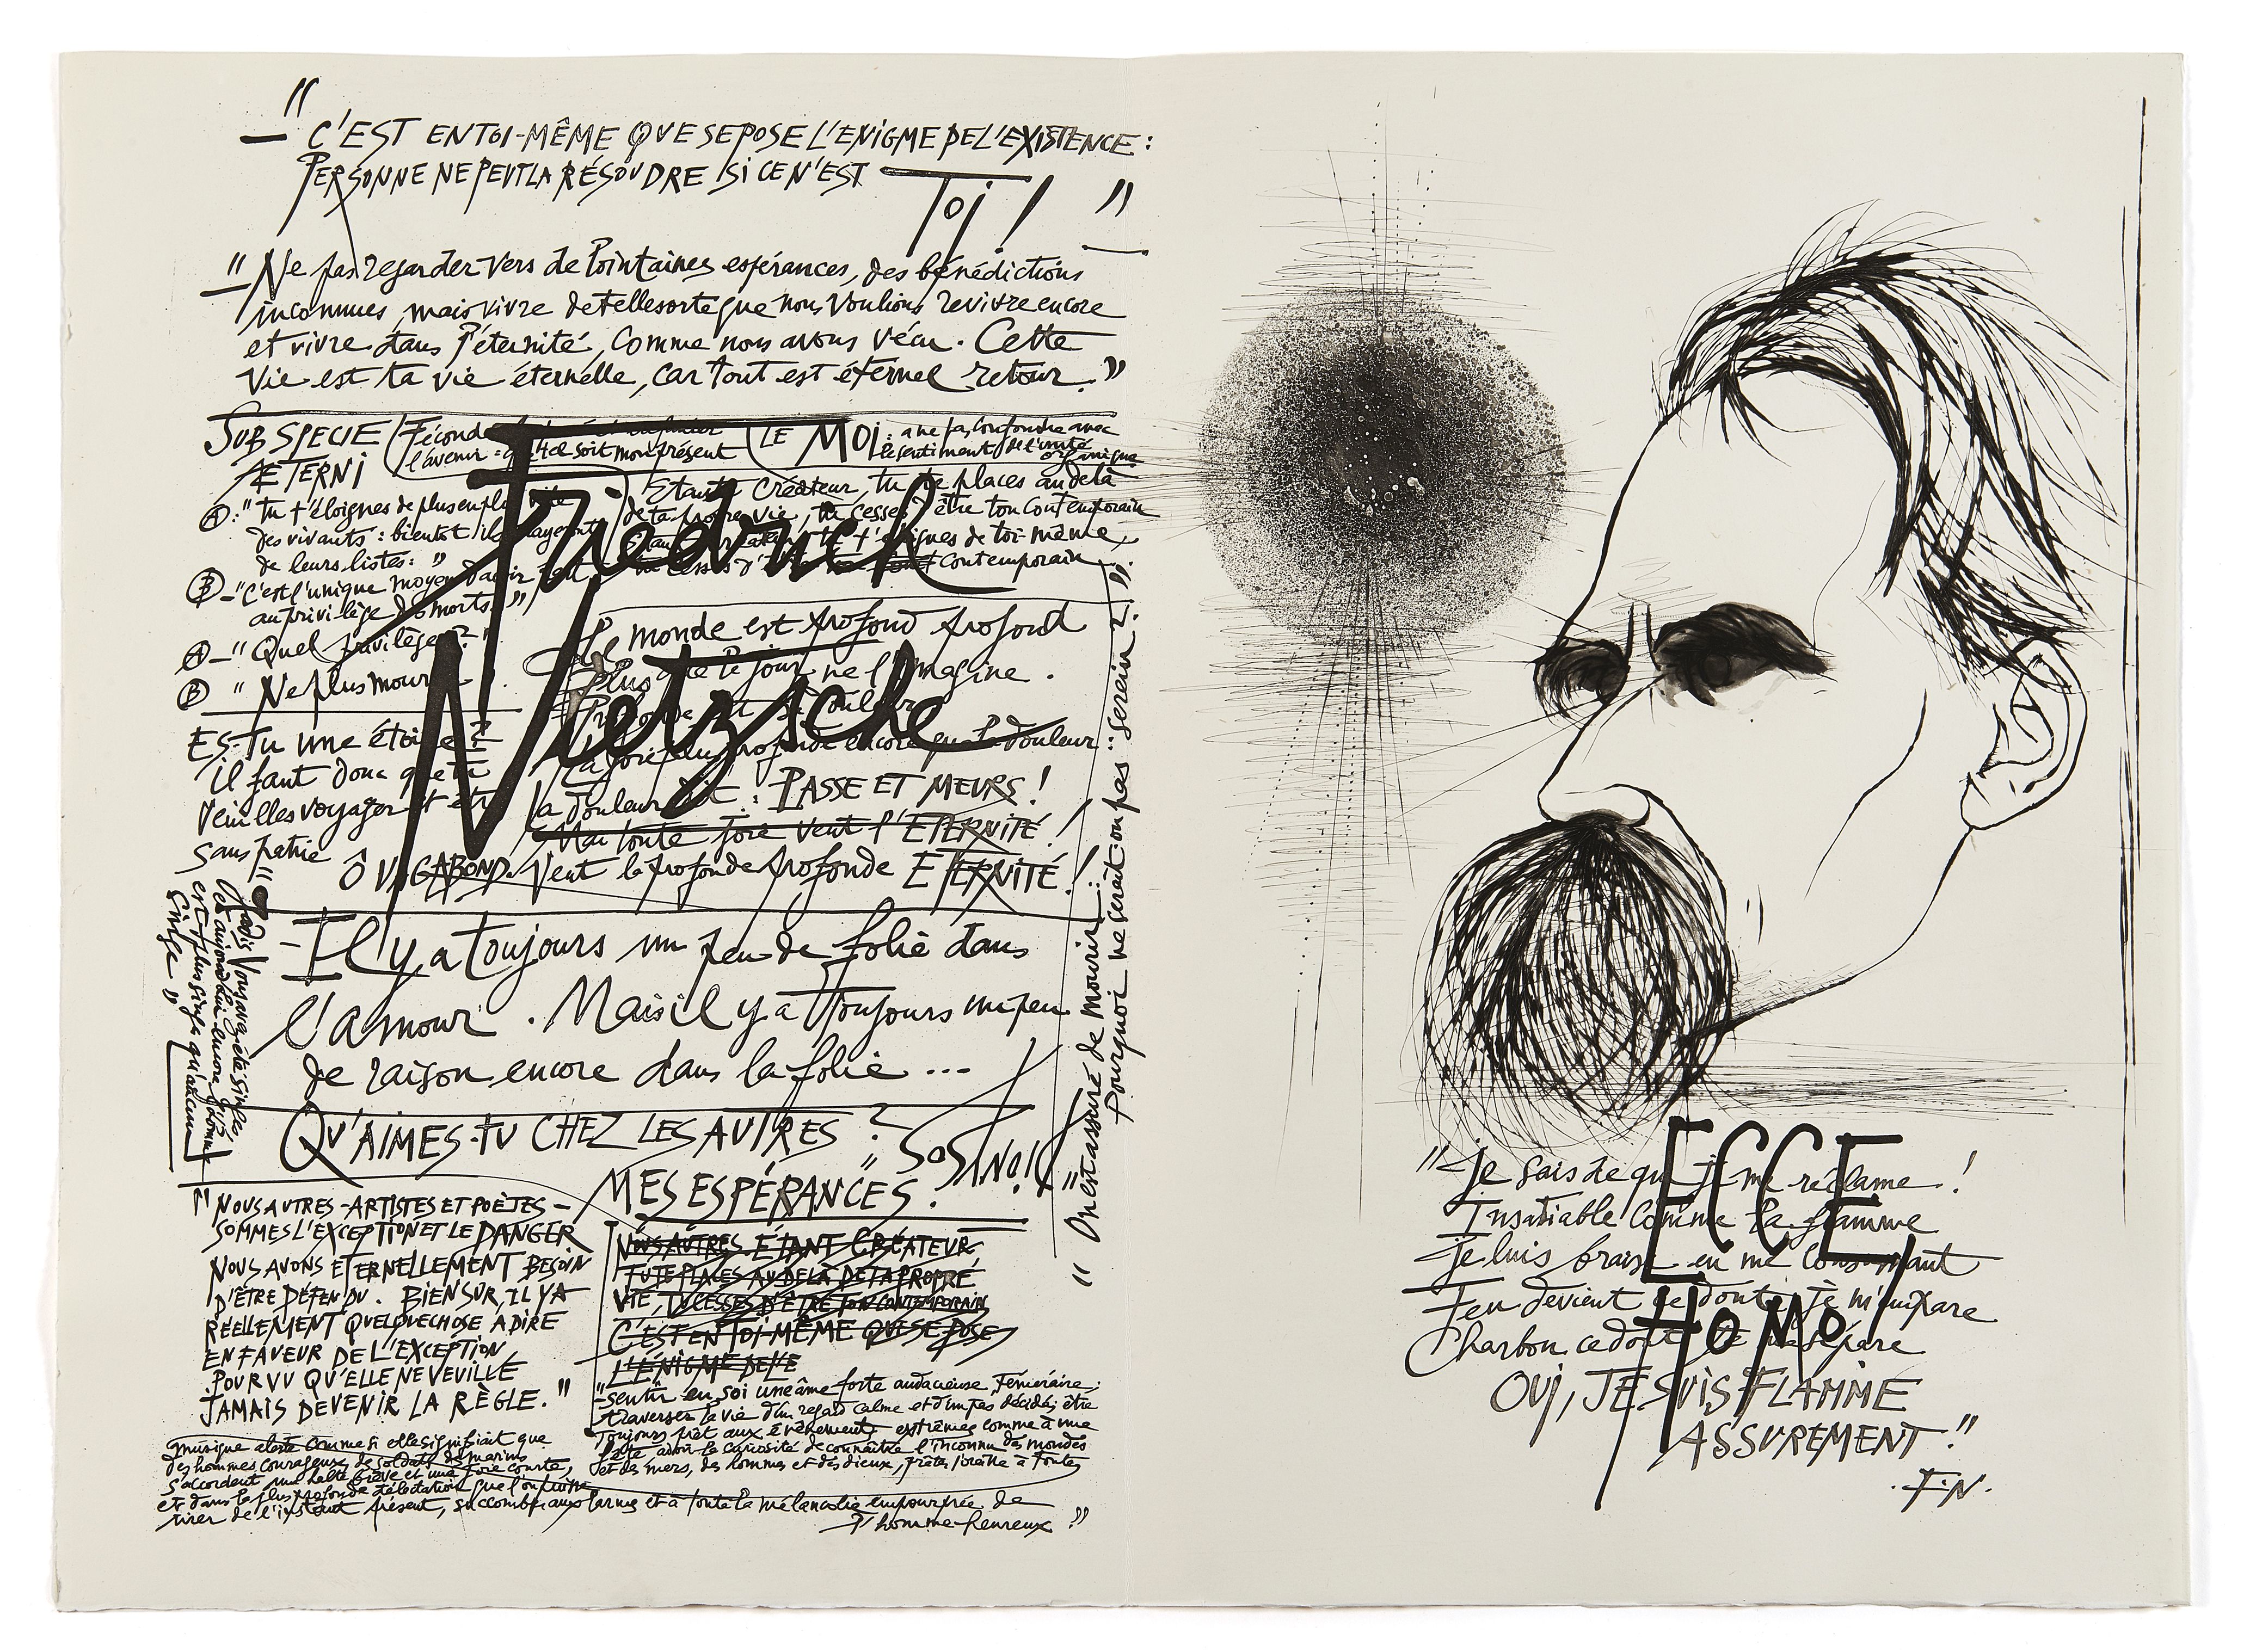 "
— C'EST EN TOI-MÊME QUE SE POSE L'ENIGME DE L'EXISTENCE :
PERSONNE NE PEUT LA RÉSOUDRE SI CE N'EST
TOI ! "
"Ne pas regarder vers de lointaines espérances, des bénédictions
inconnues, mais vivre de telle sorte que nous voulions revivre encore
et vivre dans l'éternité, comme nous avons vécu. Cette
vie est ta vie éternelle, car tout est éternel retour."
SUB SPECIE
ÆTERNI
Féconde
l'avenir : soit mon présent
LE MOI : à ne pas confondre avec
le sentiment de l'unité
organique
Friedrich
Nietzsche
Ⓐ : "Tu t'éloignes de plus en plus vite
des vivants : bientôt ils rayeront
de leurs listes."
Ⓑ — "C'est l'unique moyen d'avoir part
au privilège des morts."
Ⓐ — "Quel privilège ?"
Ⓑ "Ne plus mourir
Etant Créateur, tu te places au delà
de ta propre vie, tu cesses d'être ton contemporain
tu t'éloignes de toi-même,
tu cesses contemporain
Le monde est profond profond
Plus que le jour ne l'imagine.
Profonde est sa douleur
La joie plus profonde encore que la douleur :
la douleur dit : PASSE ET MEURS !
Mais toute joie veut l'ETERNITÉ !
Ô VAGABOND. Veut la profonde profonde ETERNITÉ !
ES-Tu une étoile ?
il faut donc que tu
veuilles voyager et être
sans patrie
"Jadis Vous avez été singes,
et aujourd'hui encore l'homme
est plus singe qu'aucun
singe"
— Il y a toujours un peu de folie dans
l'amour. Mais il y a toujours un peu
de raison encore dans la folie ...
QU'AIMES-TU CHEZ LES AUTRES ?
MES ESPÉRANCES.
"On est assuré de mourir :
Pourquoi ne serait-on pas : serein ?"
"NOUS AUTRES - ARTISTES ET POÈTES -
SOMMES L'EXCEPTION ET LE DANGER
NOUS AVONS ETERNELLEMENT BESOIN
D'ÊTRE DÉFENDU. BIEN SUR, IL Y A
RÉELLEMENT QUELQUE CHOSE A DIRE
EN FAVEUR DE L'EXCEPTION
POURVU QU'ELLE NE VEUILLE
JAMAIS DEVENIR LA RÈGLE."
NOUS AUTRES. ÉTANT CRÉATEUR
TU TE PLACES AU DELÀ DE TA PROPRE
VIE, TU CESSES D'ÊTRE TON CONTEMPORAIN
C'EST EN TOI-MÊME QUE SE POSE
L'ÉNIGME DE L'E
"sentir en soi une âme forte audacieuse, téméraire ;
traverser la vie d'un regard calme et d'un pas décidé, être
toujours prêt aux évènements extrêmes comme à une
fête avoir la curiosité de connaître l'inconnu des mondes
et des mers, des hommes et des dieux, prêter l'oreille à toute
musique alerte comme si elle signifiait que
des hommes courageux, de soldats, des marins
s'accordent une halte brève et une joie courte,
et dans la plus profonde délectation que l'on puisse
tirer de l'instant présent, succomber aux larmes et à toute la mélancolie empourprée de
l'homme heureux"
ECCE
HOMO
"Je sais de qui je me réclame !
Insatiable comme la flamme
Je luis braise en me consumant
Feu devient ce dont je m'empare
Charbon ce dont je me sépare
OUI, JE SUIS FLAMME
ASSUREMENT."
.F.N.